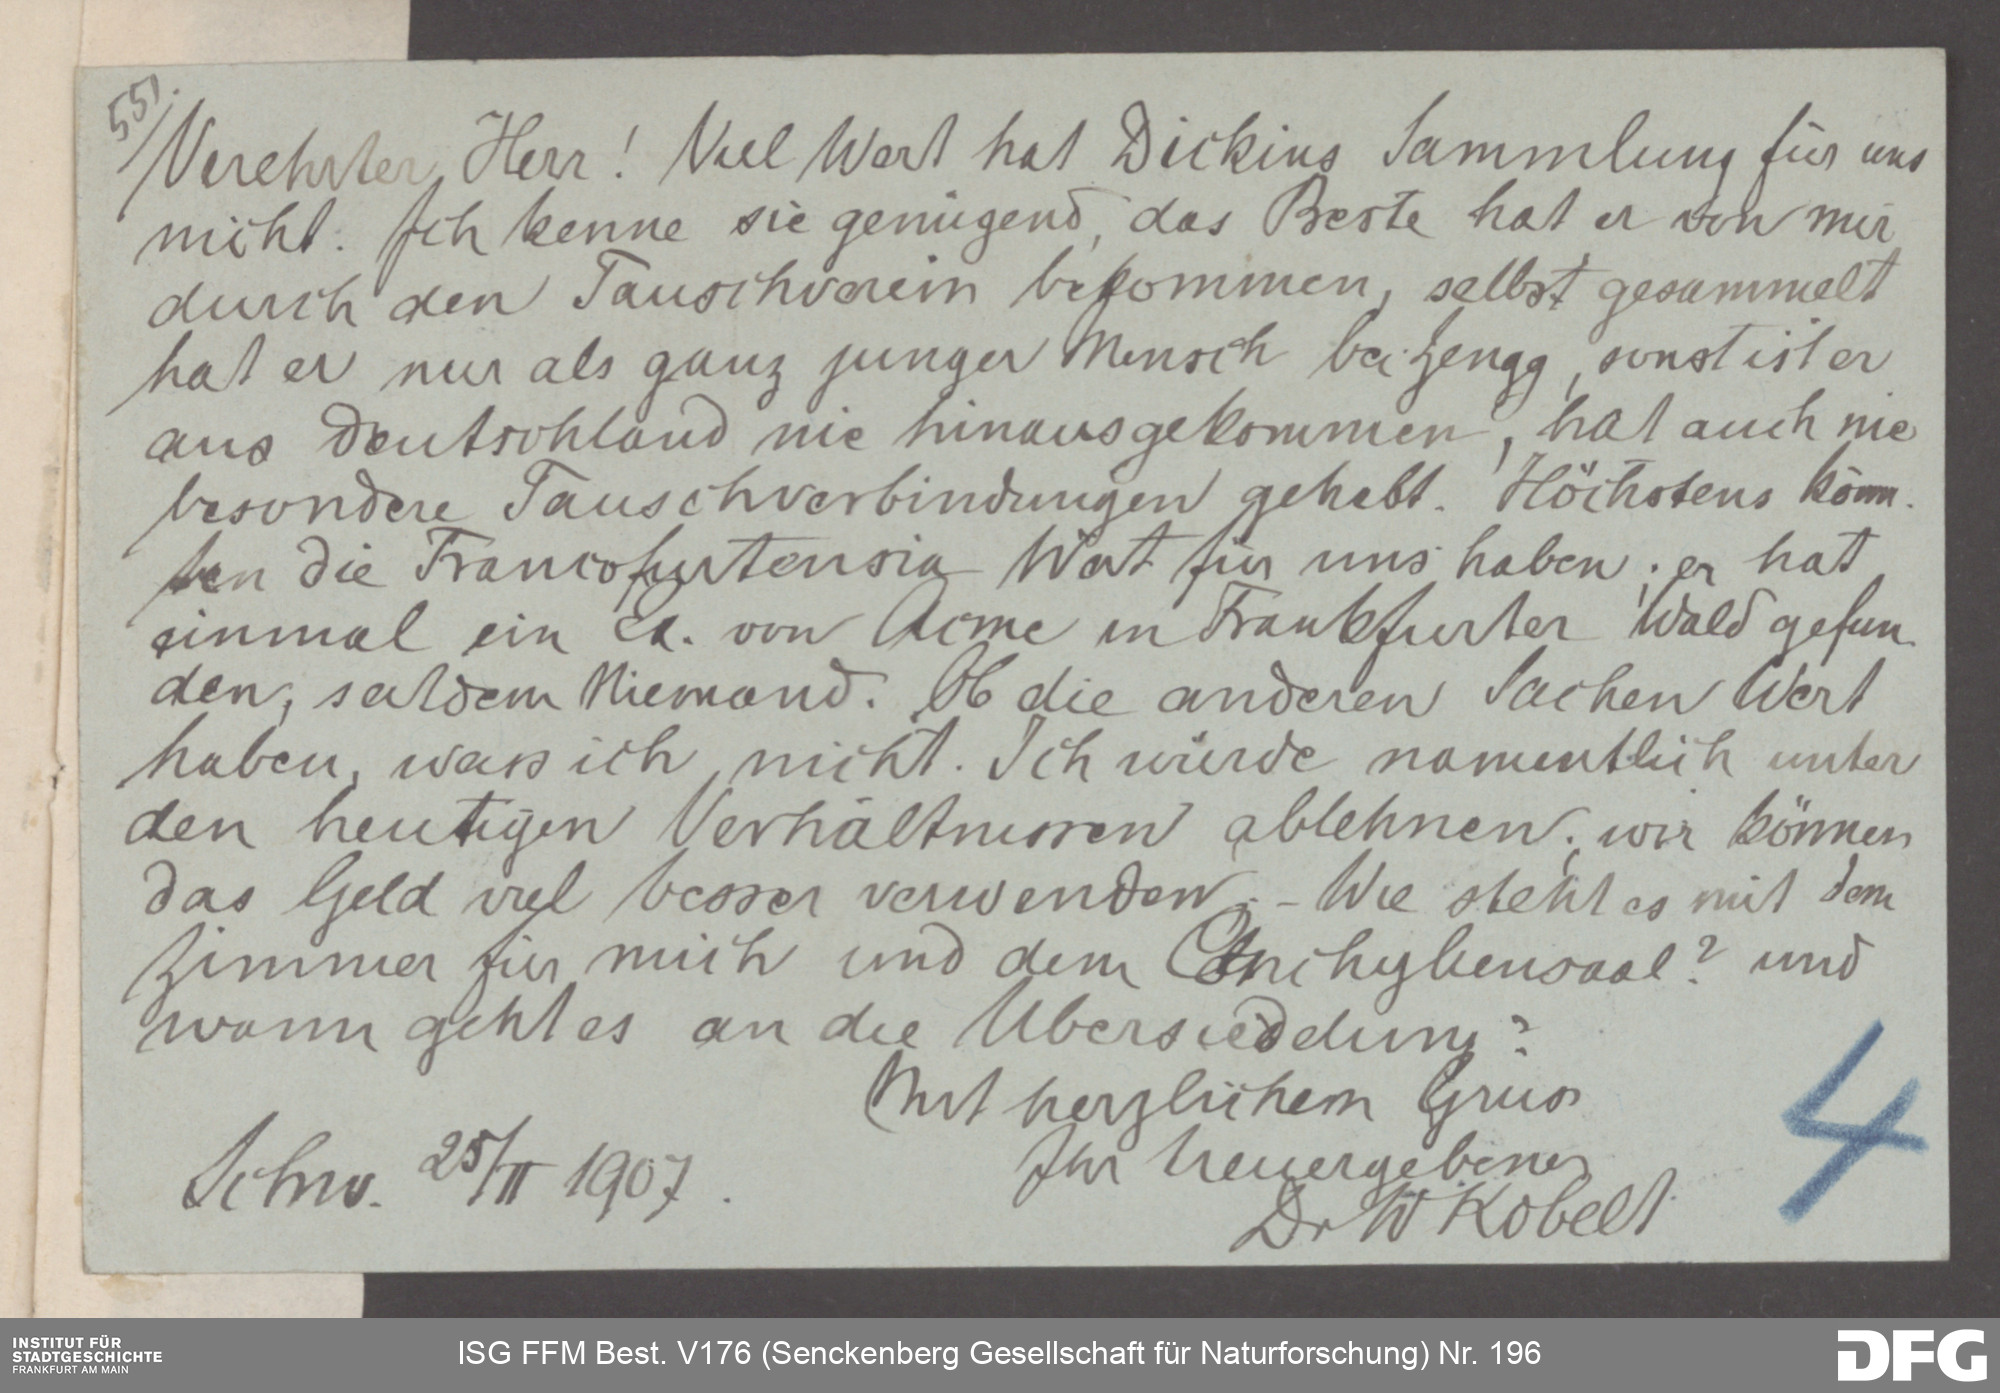 55).
Verehrter Herr! Viel Wert hat Dickins Sammlung für uns
nicht. Ich kenne sie genügend, das Beste hat er von mir
durch den Tauschverein bekommen, selbst gesammelt
hat er nur als ganz junger Mensch bei Zengg, sonst ist er
aus Deutschland nie hinausgekommen, hat auch nie
besondere Tauschverbindungen gehabt. Höchstens könn-
ten die Francofurtensia Wert für uns haben; er hat
einmal ein Ex. von Acme in Frankfurter Wald gefun
den, seitdem Niemand. Ob die anderen Sachen Wert
haben, weiss ich nicht. Ich würde namentlich unter
den heutigen Verhältnissen ablehnen; wir können
das Geld viel besser verwenden. – Wie steht es mit dem
Zimmer für mich und dem Conchyliensaal? und
wann geht es an die Übersiedelung?
Mit herzlichem Gruss
Ihr treuergebener
Schw. 25/II 1907.
Dr W Kobelt
4
INSTITUT FÜR
STADTGESCHICHTE
FRANKFURT AM MAIN
ISG FFM Best. V176 (Senckenberg Gesellschaft für Naturforschung) Nr. 196
DFG